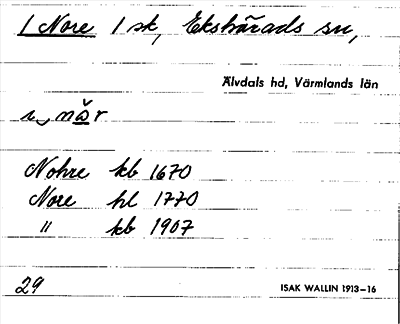 1 Nore 1 sk, Ekshärads sn,
Älvdals hd, Värmlands län
i, når
Nohre kb 1670
Nore hl 1770
" kb 1907
29
ISAK WALLIN 1913–16